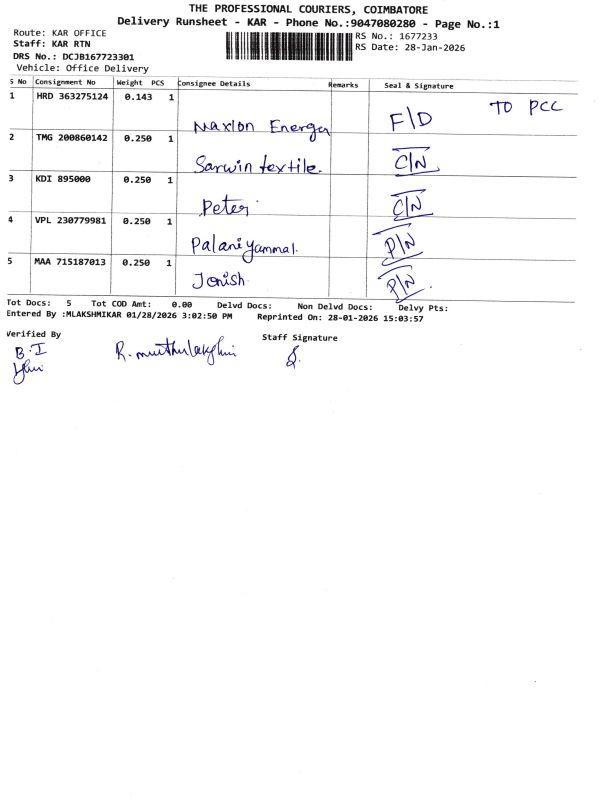 THE PROFESSIONAL COURIERS, COIMBATORE
Delivery Runsheet - KAR - Phone No.:9047080280 - Page No.:1
Route: KAR OFFICE
RS No.: 1677233
Staff: KAR RTN
RS Date: 28-Jan-2026
DRS No.: DCJB167723301
Vehicle: Office Delivery
S No Consignment No Weight PCS Consignee Details Remarks Seal & Signature
1 HRD 363275124 0.143 1 F/D TO PCC
Naxion Energy
2 TMG 200860142 0.250 1
Sarwin textile. C/N
3 KDI 895000 0.250 1
Peter C/N
4 VPL 230779981 0.250 1
Palaniyammal. P/N
5 MAA 715187013 0.250 1
Jonish P/N.
Tot Docs: 5 Tot COD Amt: 0.00 Delvd Docs: Non Delvd Docs: Delvy Pts:
Entered By :MLAKSHMIKAR 01/28/2026 3:02:50 PM Reprinted On: 28-01-2026 15:03:57
Verified By
Staff Signature
B.I R.muthulakshmi